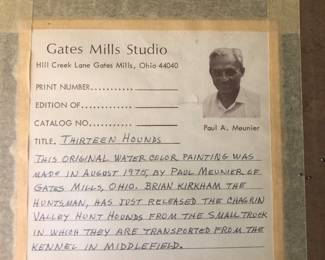 Gates Mills Studio
Hill Creek Lane Gates Mills, Ohio 44040
PRINT NUMBER..............
EDITION OF..............
CATALOG NO............
Paul A. Meunier
TITLE. THIRTEEN HOUNDS
THIS ORIGINAL WATER COLOR PAINTING WAS
MADE IN AUGUST 1975, BY PAUL MEUNIER OF
GATES MILLS, OHIO. BRIAN KIRKHAM THE
HUNTSMAN, HAS JUST RELEASED THE CHAGRIN
VALLEY HUNT HOUNDS FROM THE SMALL TRUCK
IN WHICH THEY ARE TRANSPORTED FROM THE
KENNEL IN MIDDLEFIELD.